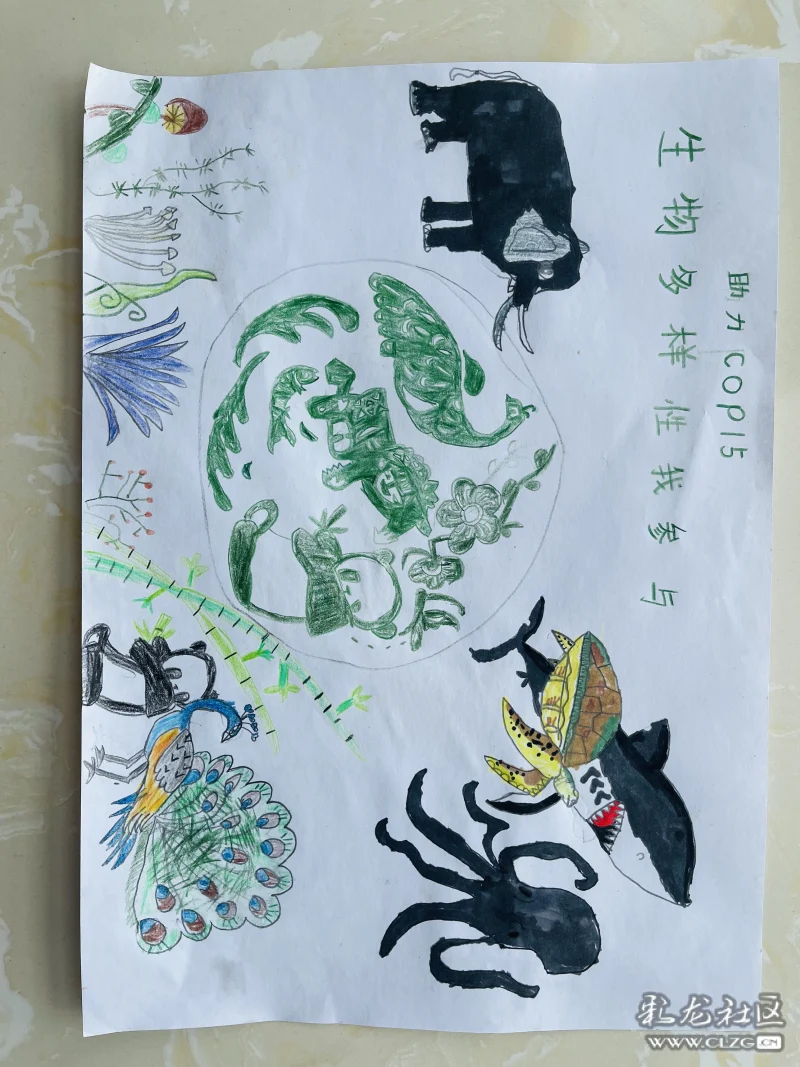 助力COP15
生物多样性我参与
彩龙社区
WWW.CLZG.CN